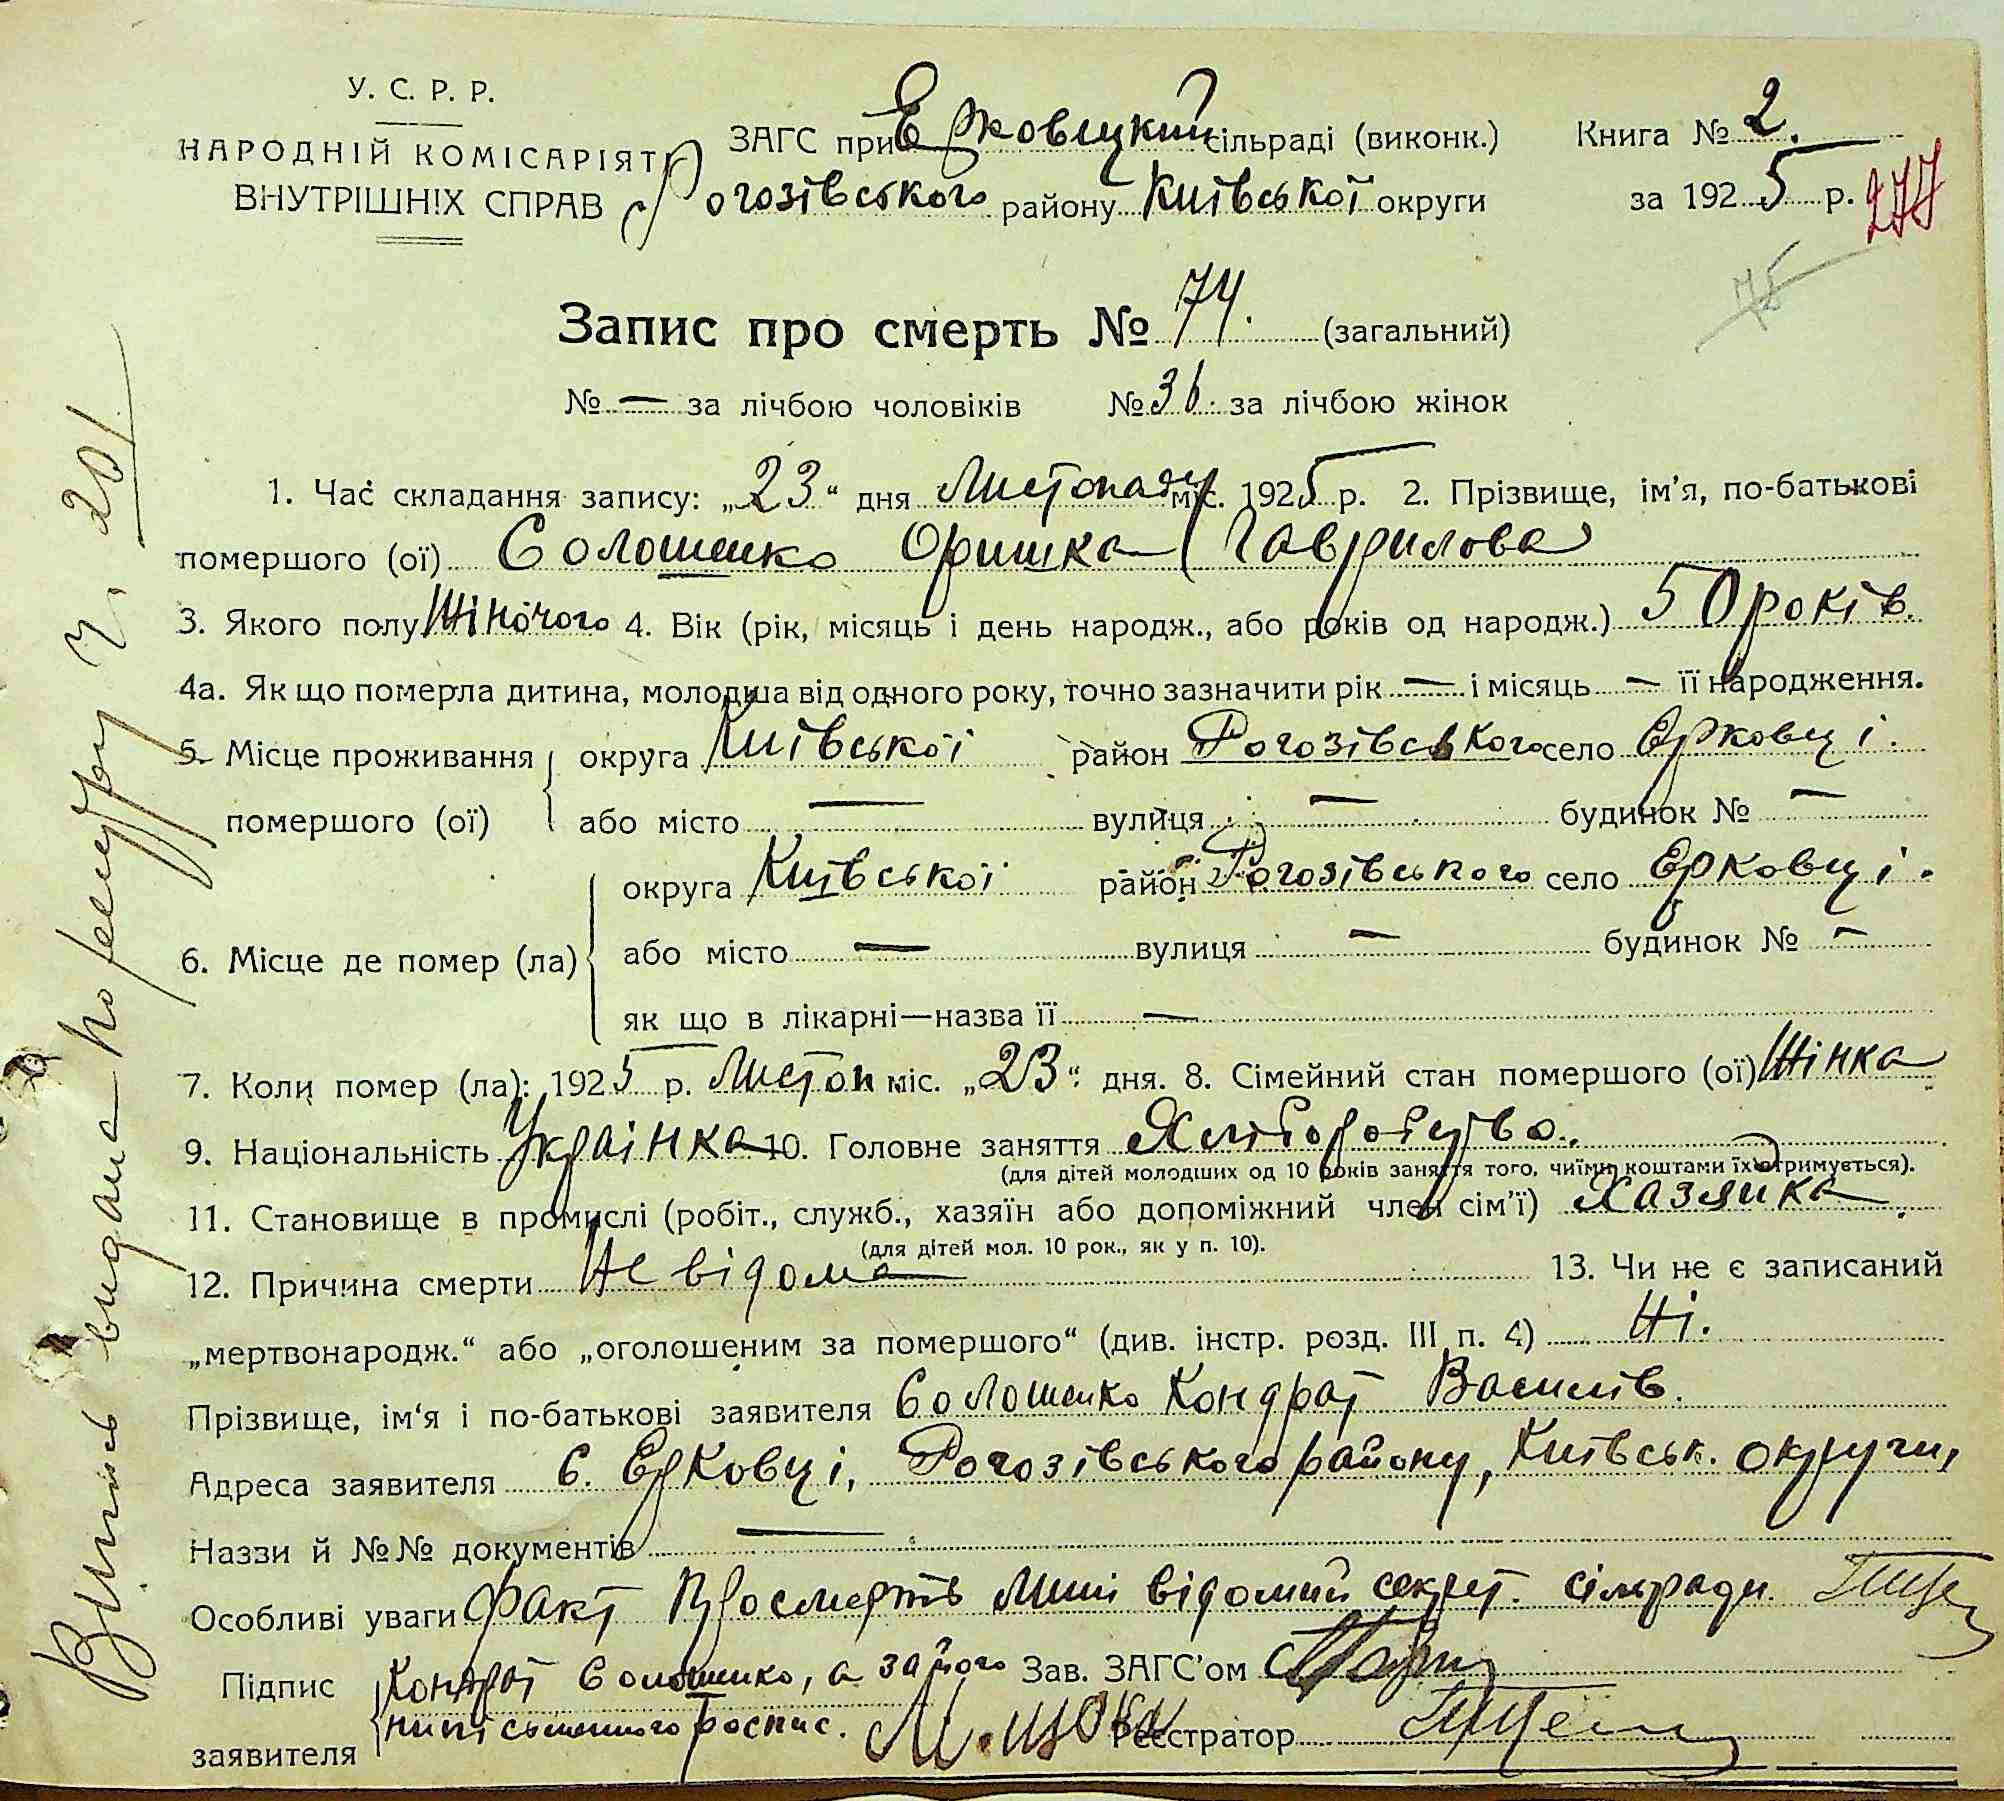 У. С. Р. Р.
НАРОДНІЙ КОМІСАРІЯТ
ВНУТРІШНІХ СПРАВ
ЗАГС при Ерковецкий сільраді (виконк.)
Рогозівського району Київської округи
Книга № 2.
за 1925 р.
277
75
Запис про смерть № 74. (загальний)
№ — за лічбою чоловіків № 36. за лічбою жінок
1. Час складання запису: „23“ дня Листопаду міс. 1925 р. 2. Прізвище, ім'я, по-батькові
помершого (ої) Солошенко Оришка Гаврилова
3. Якого полу Жіночого 4. Вік (рік, місяць і день народж., або років од народж.) 50 років.
4а. Як що померла дитина, молодша від одного року, точно зазначити рік — і місяць — її народження.
5. Місце проживання помершого (ої) округа Київської район Рогозівського село Ерковці.
або місто — вулиця — будинок № —
6. Місце де помер (ла) округа Київської район Рогозівського село Ерковці.
або місто — вулиця — будинок № —
як що в лікарні—назва її —
7. Коли помер (ла): 1925 р. Листоп міс. „23“ дня. 8. Сімейний стан помершого (ої) Жінка
9. Національність Українка 10. Головне заняття Хліборобство.
(для дітей молодших од 10 років заняття того, чиїми коштами їх отримується).
11. Становище в промислі (робіт., служб., хазяїн або допоміжний член сім'ї) Хазяйка.
(для дітей мол. 10 рок., як у п. 10).
12. Причина смерти Не відома 13. Чи не є записаний
„мертвонародж.“ або „оголошеним за помершого“ (див. інстр. розд. III п. 4) Ні.
Прізвище, ім'я і по-батькові заявителя Солошенко Кондрат Василів.
Адреса заявителя с. Ерковці, Рогозівського району, Київськ. округи,
Назви й №№ документів —
Особливі уваги Факт про смерть мині відомий секрет. сільради.
Підпис заявителя Кондрат Солошенко, а за його
нипісьменного роспис.
Зав. ЗАГС'ом
Реєстратор
Випись видана по реєстру Ч. 201